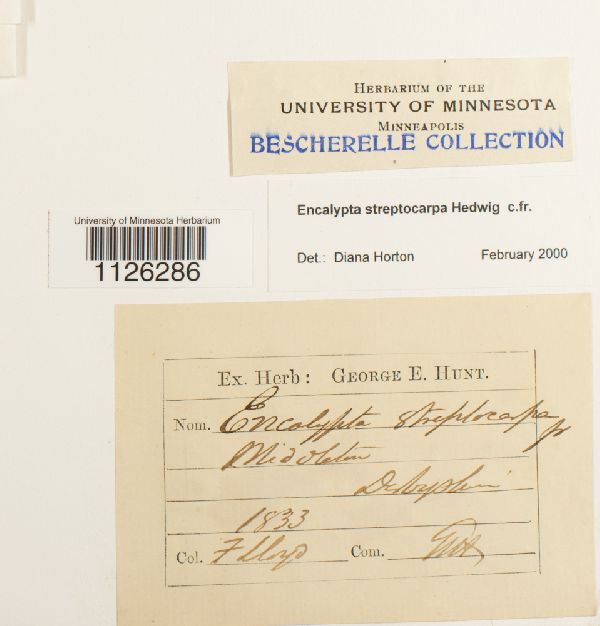 HERBARIUM OF THE
UNIVERSITY OF MINNESOTA
MINNEAPOLIS
BESCHERELLE COLLECTION
Encalypta streptocarpa Hedwig c.fr.
Det.: Diana Horton February 2000
University of Minnesota Herbarium
1126286
Ex. Herb: GEORGE E. HUNT.
Nom. Encalypta streptocarpa fr
Midolton
Derbyshi
1833
Col. F Lloyd Com.